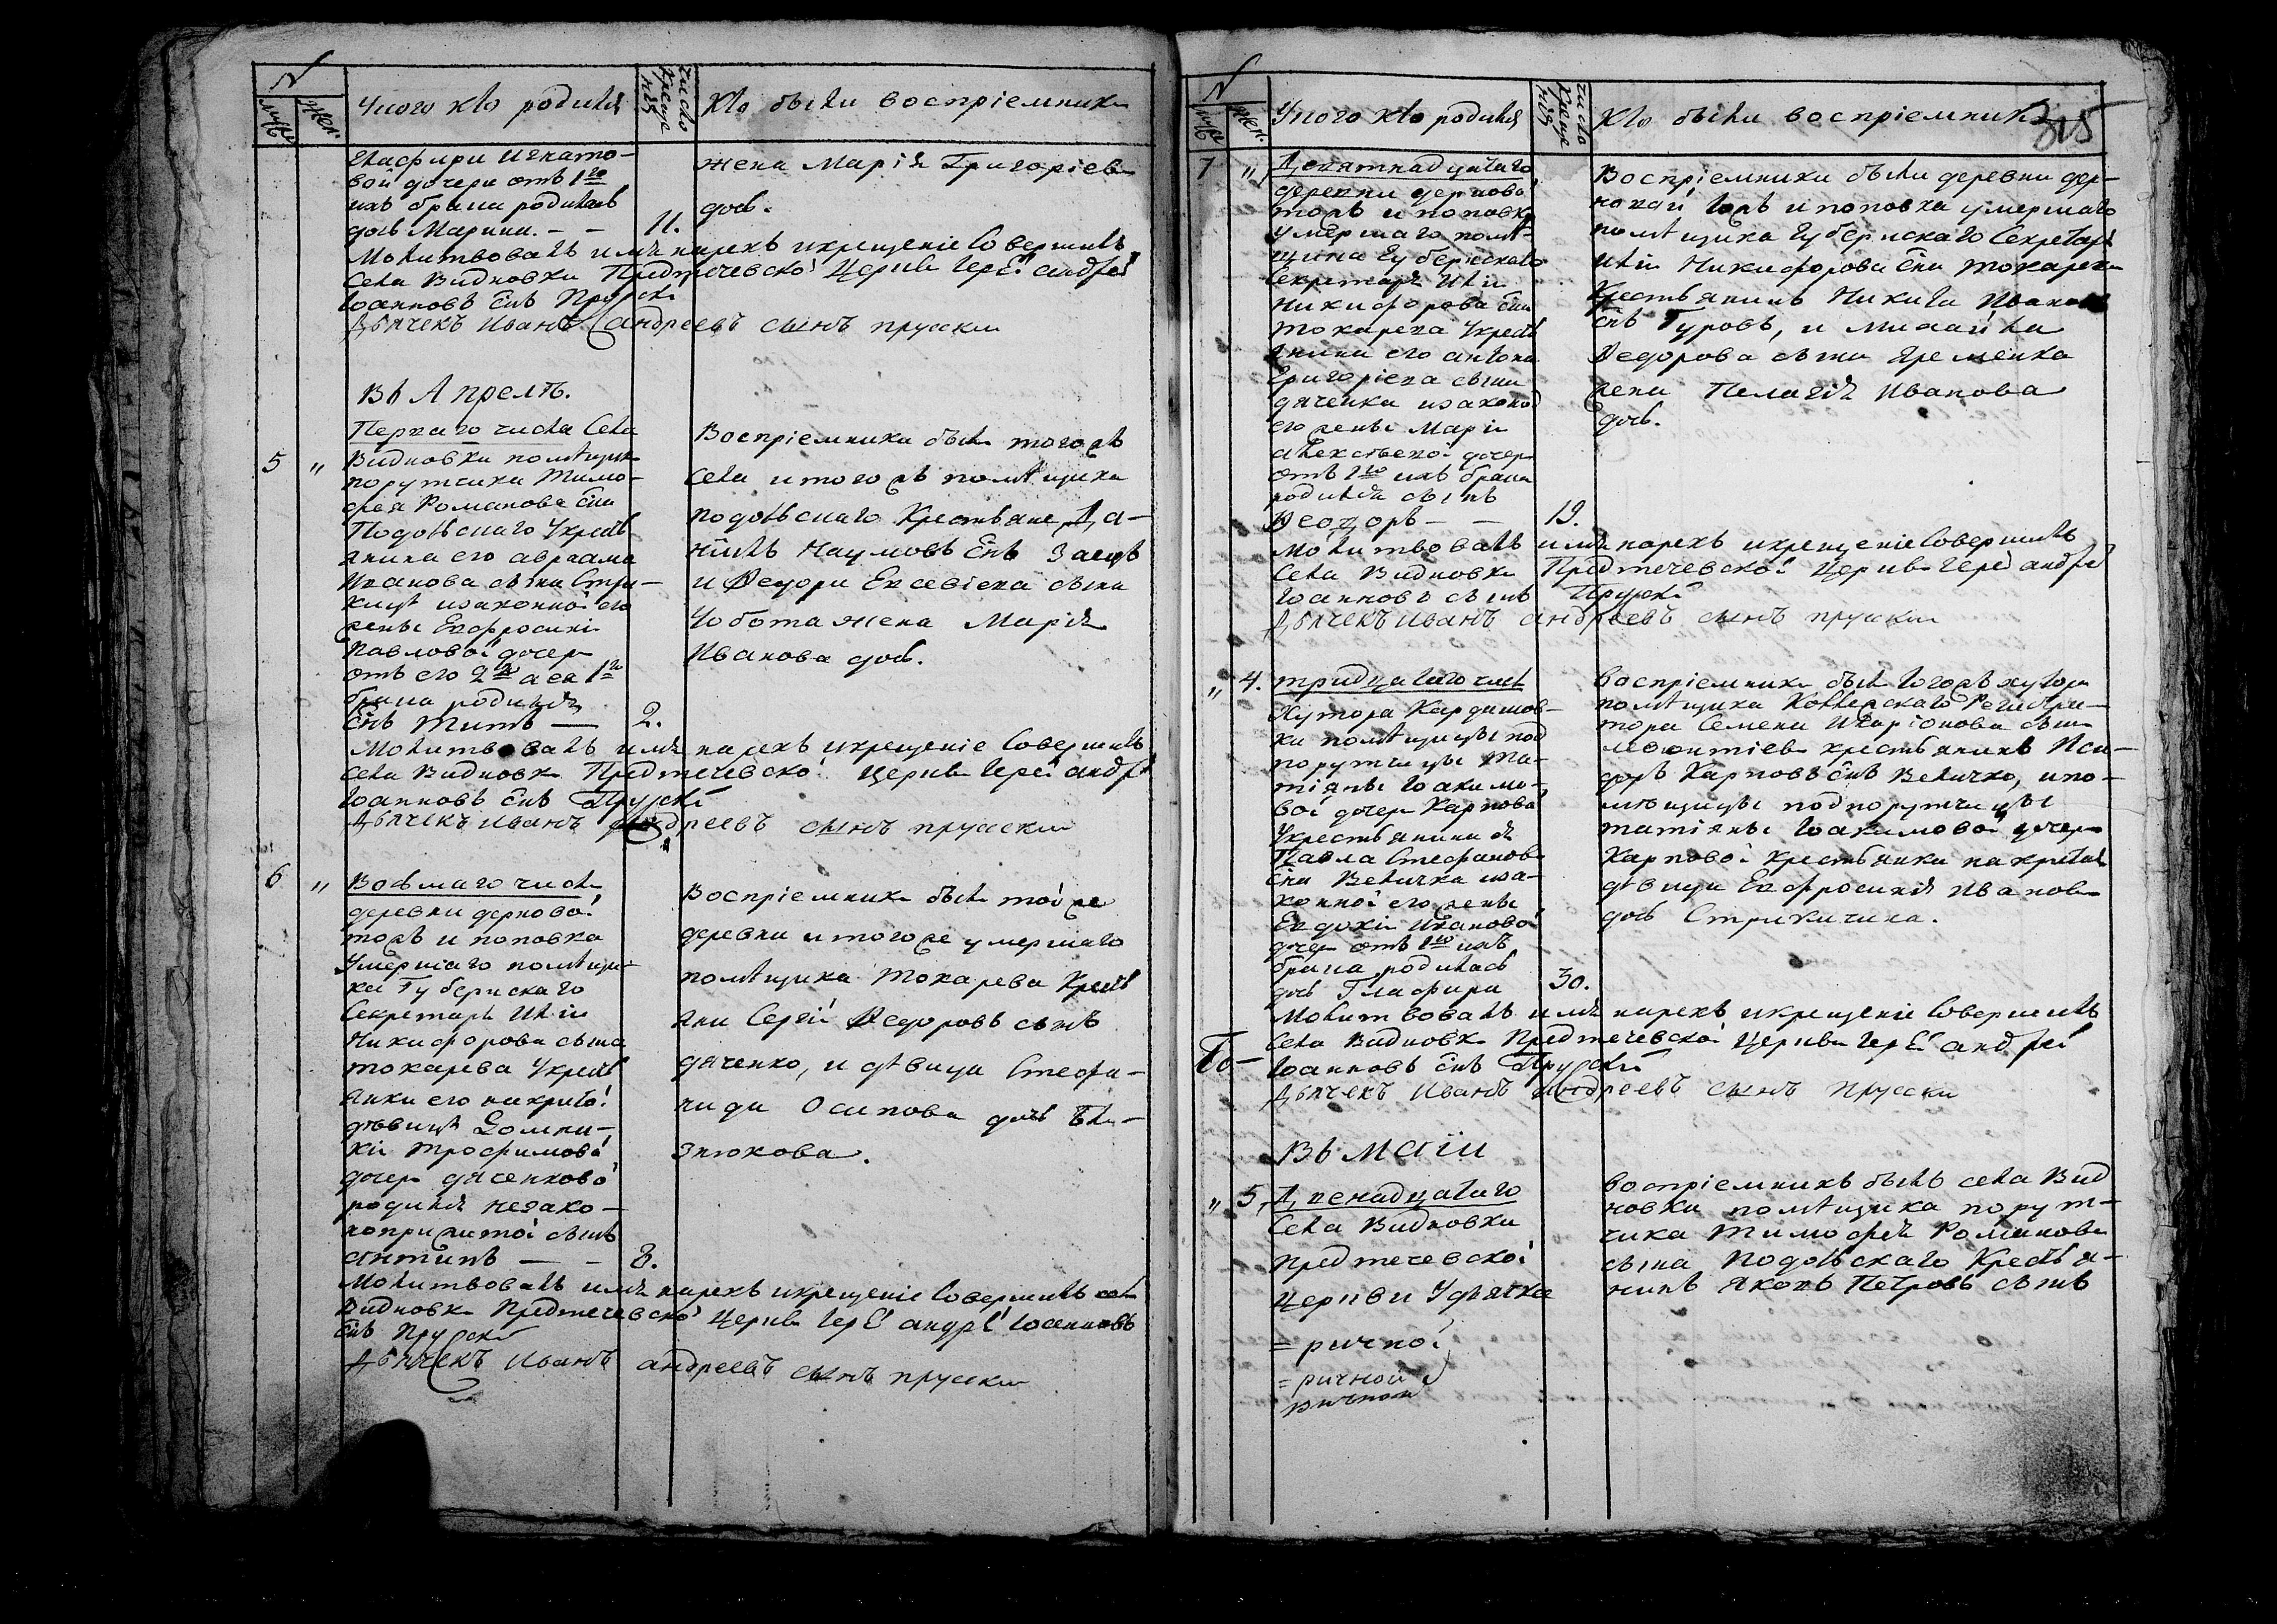 N
муж
жен.
Уного кто родился
число
креще
нія
Кто были воспріемники
Гласфири Игнато-
вой дочери отъ 1го
ихъ брака родилась
дочь Марина. - - 11.
жена Марія Григоріева
дочь.
Молитвовалъ имя нарекъ и крещеніе Совершилъ
Села Видновки Предтечевской Церкви Іерей Андрей
Іоанновъ Снъ Прускій
Дьячекъ Иванъ андреевъ сынъ прускии
Въ Апрелѣ.
5 "
Перваго числа Села
Видновки помѣщика
порутчика Тимо-
фея Романова Сна
Подольскаго Укресть
янина его авраама
Иванова сына Стри-
жена изаконной его
жены Евфросиніи
Павловой дочери
отъ его 2го а ея 1го
брака родился
Снъ Титъ — 2.
Воспріемники были тогожъ
Села и тогожъ помѣщика
подольскаго Крестьяне Да-
ніилъ Наумовъ Снъ Заецъ
и Ѳедора Евсевіева сына
Чобота жена Марія
Иванова дочь.
Молитвовалъ имя нарекъ и крещеніе Совершилъ
Села Видновки Предтечевской Церкви Іерей андрей
Іоанновъ Снъ Прускій
Дьячекъ Иванъ андреевъ сынъ прускии
6 "
Восьмаго числа
деревни дерновой
тожъ и поповка
Умершаго помѣщи-
ка Губернскаго
Секретаря Иліи
Никифорова сына
токарева Укресть
янки его накритой
дѣвицѣ Домни-
кіи трофимовой
дочери дяченковой
родился незако-
ноприжитой сынъ
антипъ — - 8.
Воспріемники были тойже
деревни и тогоже умершаго
помѣщика Токарева Кресть
яни Сергій Ѳедоровъ сынъ
дяченко, и дѣвица Стефа-
нида Осипова дочь Бли-
знюкова.
Молитвовалъ имя нарекъ и крещеніе Совершилъ села
Видновки Предтечевской Церкви Іерей андрей Іоанновъ
Снъ Прускій
Дьячекъ Иванъ андреевъ сынъ прускии
N
муж
жен.
Уного кто родился
число
креще
нія
Кто были воспріемники
315
7 "
Девятнадцатаго
деревни дерновой
тожъ и поповка
умершаго помѣ-
щика Губернскаго
Секретаря Иліи
Никифорова Сна
токарева Укресть
янина его антона
Григоріева сына
дяченка изаконой
его жены Маріи
алексѣевой дочери
отъ 1го ихъ брака
родился сынъ
Ѳеодоръ - - 19.
Воспріемники были деревни дер-
новой тожъ и поповка умершаго
помѣщика Губернскаго Секретаря
Иліи Никифорова Сна токарева
Крестьянинъ Никита Ивановъ
Снъ Гуровъ, и Михаила
Ѳедорова сына Яременка
жена Пелагія Иванова
дочь.
Молитвовалъ имя нарекъ и крещеніе Совершилъ
Села Видновки Предтечевской Церкви Іерей андрей
Іоанновъ сынъ Прускій
Дьячекъ Иванъ андреевъ сынъ прускии
" 4.
тридцатаго числа
Хутора Кардашов-
ки помѣщицы под
порутчицы Та-
тіяны Іоакимо-
вой дочери Карповой
Укрестьянина ея
Павла Стефанова
Сна Величка иза-
конной его жены
Евдокіи Ивановой
дочери отъ 1го ихъ
брака родилась
дочь Гласфира 30.
воспріемники были тогожъ хутора
помѣщика Колежскаго Регистра-
тора Семена Иларіонова сына
леонтіева крестьянинъ Иси-
доръ Карповъ Снъ Величко, и по-
мѣщицы подпорутчицы
татіяны Іоакимовой дочери
Карповой крестьянки накритая
дѣвица Евфросинія Иванова
дочь Стрижичина.
Молитвовалъ имя нарекъ и крещеніе Совершилъ
Села Видновки Предтечевской Церкви Іерей андрей
Іоанновъ Снъ Прускій
Дьячекъ Иванъ андреевъ сынъ Прускии
Въ Маіи
" 5,
Двенадцатаго
Села Видновки
предтечевской
Церкви Удьячка
воспріемникъ былъ села Вид
новки помѣщика порут-
чика Тимофея Романова
сына Подольскаго Крестья-
нинъ Яковъ Петровъ сынъ
= ричной
= ричной